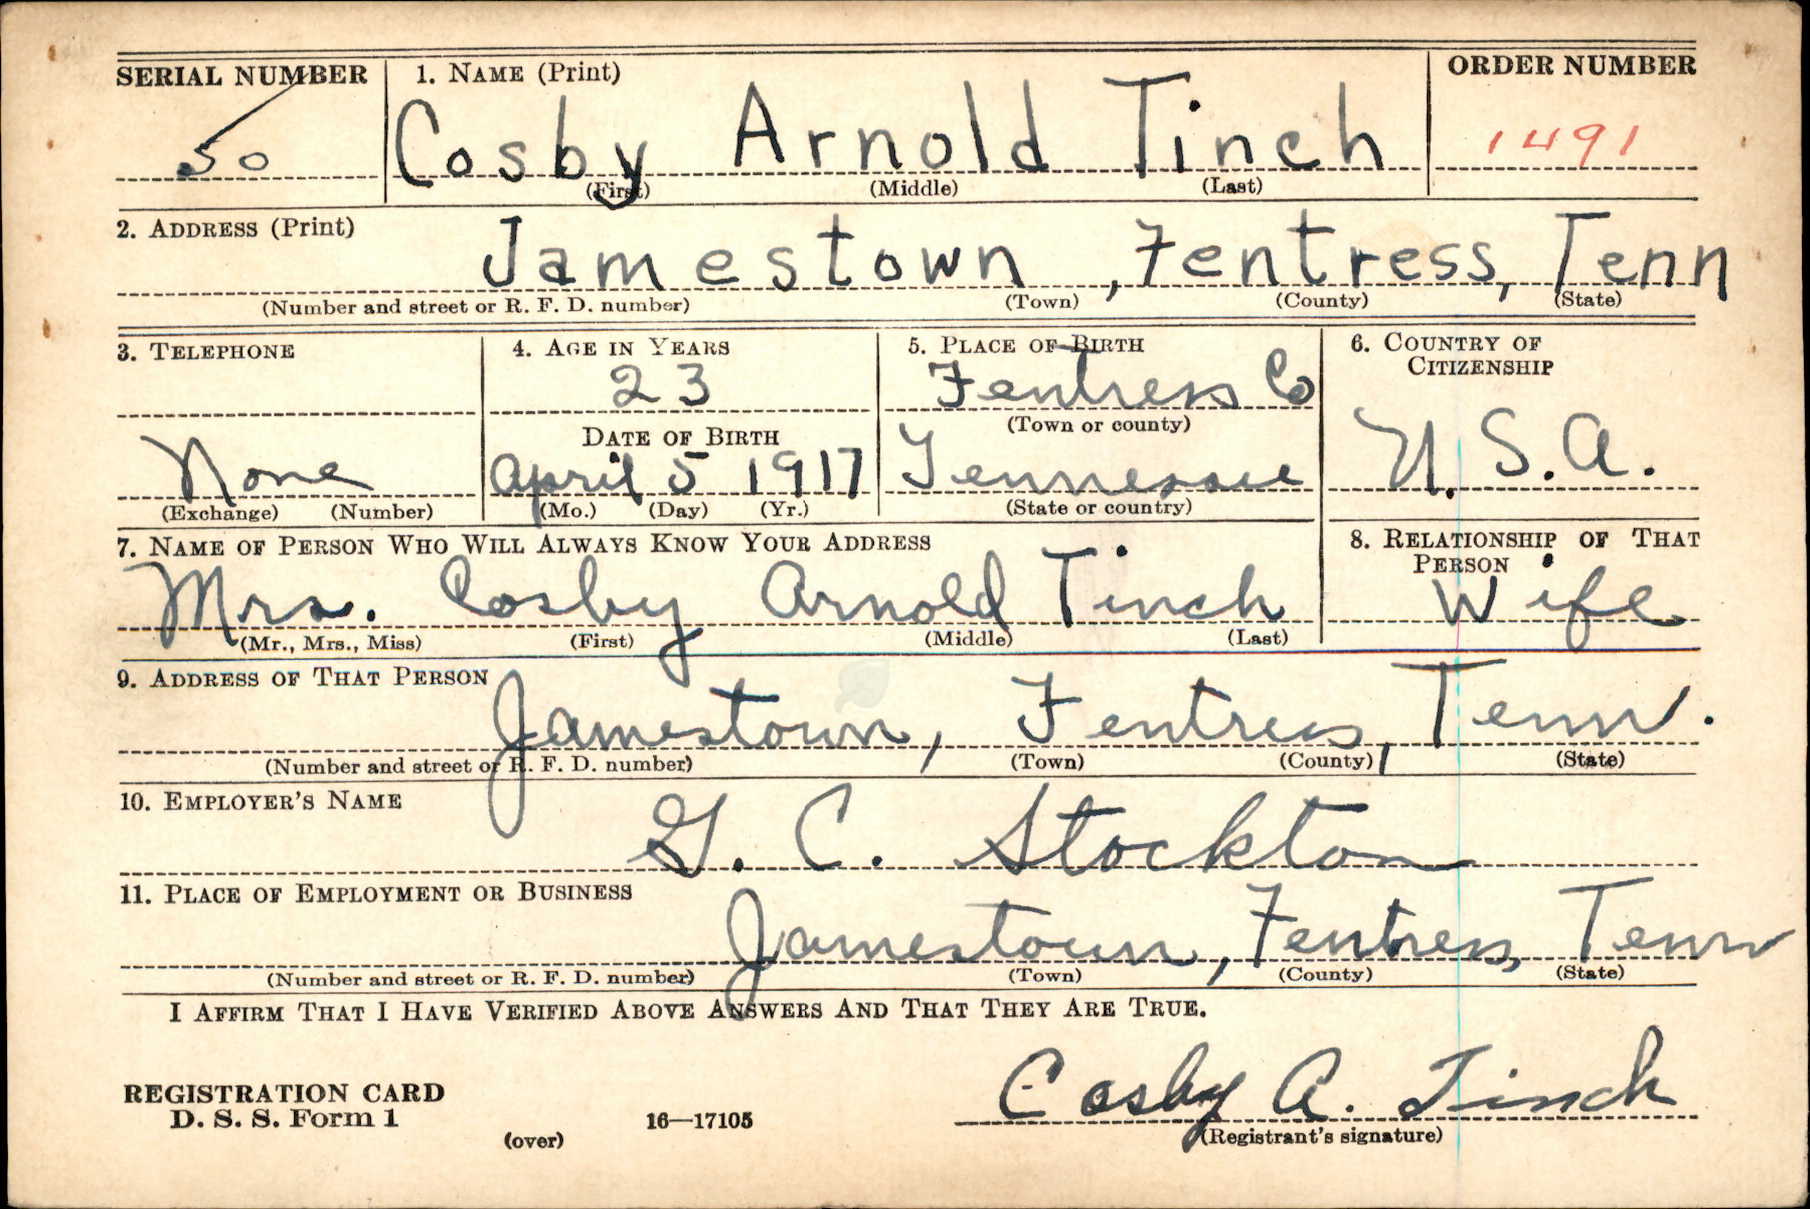 SERIAL NUMBER 1. NAME (Print) ORDER NUMBER
50 Cosby Arnold Tinch 1491
(First) (Middle) (Last)
2. ADDRESS (Print)
Jamestown, Fentress, Tenn
(Number and street or R. F. D. number) (Town) (County) (State)
3. TELEPHONE 4. AGE IN YEARS 5. PLACE OF BIRTH 6. COUNTRY OF
CITIZENSHIP
23 Fentress Co
DATE OF BIRTH (Town or county)
None April 5 1917 Tennessee U.S.A.
(Exchange) (Number) (Mo.) (Day) (Yr.) (State or country)
7. NAME OF PERSON WHO WILL ALWAYS KNOW YOUR ADDRESS 8. RELATIONSHIP OF THAT
PERSON
Mrs. Cosby Arnold Tinch Wife
(Mr., Mrs., Miss) (First) (Middle) (Last)
9. ADDRESS OF THAT PERSON
Jamestown, Fentress, Tenn.
(Number and street or R. F. D. number) (Town) (County) (State)
10. EMPLOYER'S NAME
G. C. Stockton
11. PLACE OF EMPLOYMENT OR BUSINESS
Jamestown, Fentress, Tenn
(Number and street or R. F. D. number) (Town) (County) (State)
I AFFIRM THAT I HAVE VERIFIED ABOVE ANSWERS AND THAT THEY ARE TRUE.
REGISTRATION CARD
D. S. S. Form 1 16—17105 Cosby A. Tinch
(over) (Registrant's signature)